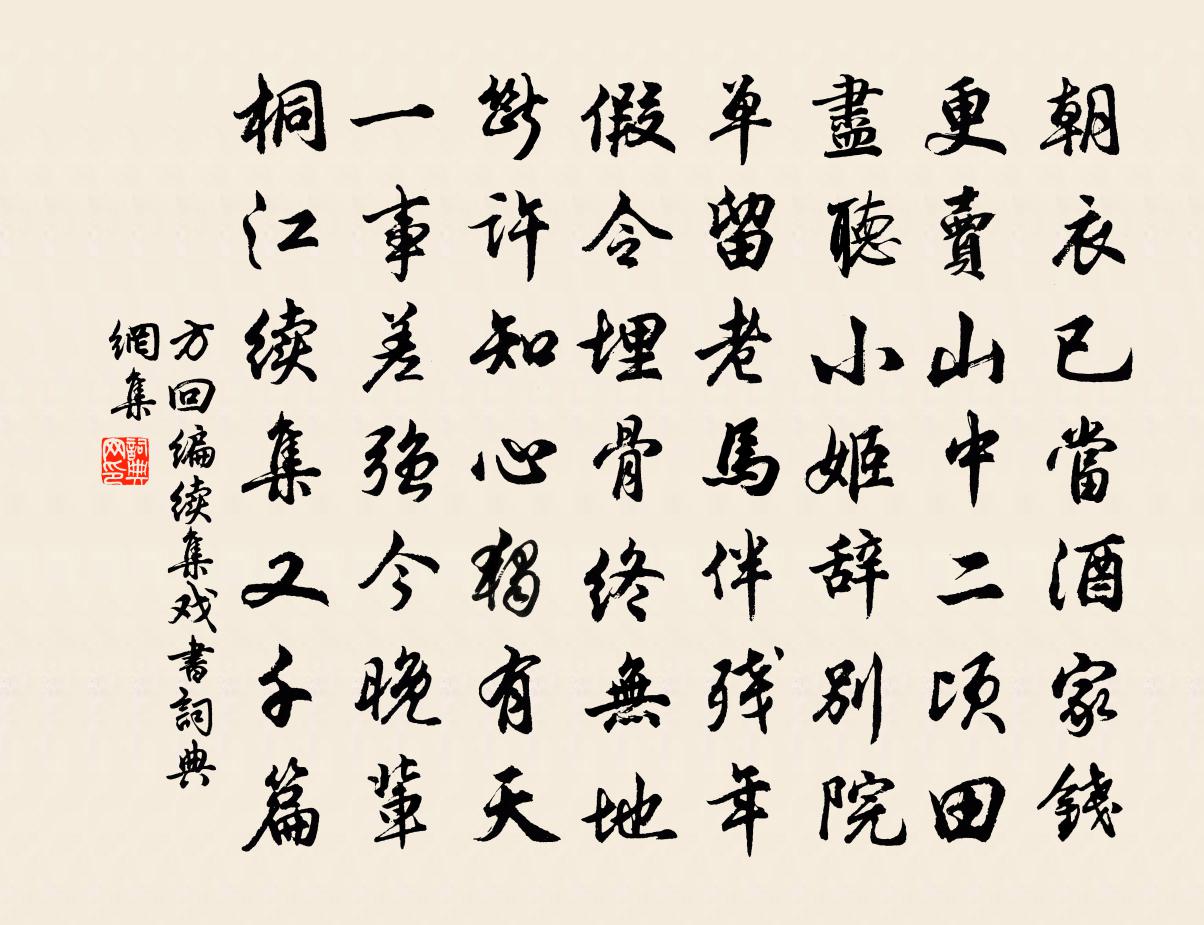 朝衣已當酒家錢
更賣山中二頃田
盡聽小姬辞別院
单留老馬伴残年
假令埋骨終無地
斷许知心獨有天
一事差强今晚輩
桐江续集又千篇
方回编续集戏書詞典
網集
詞典网印